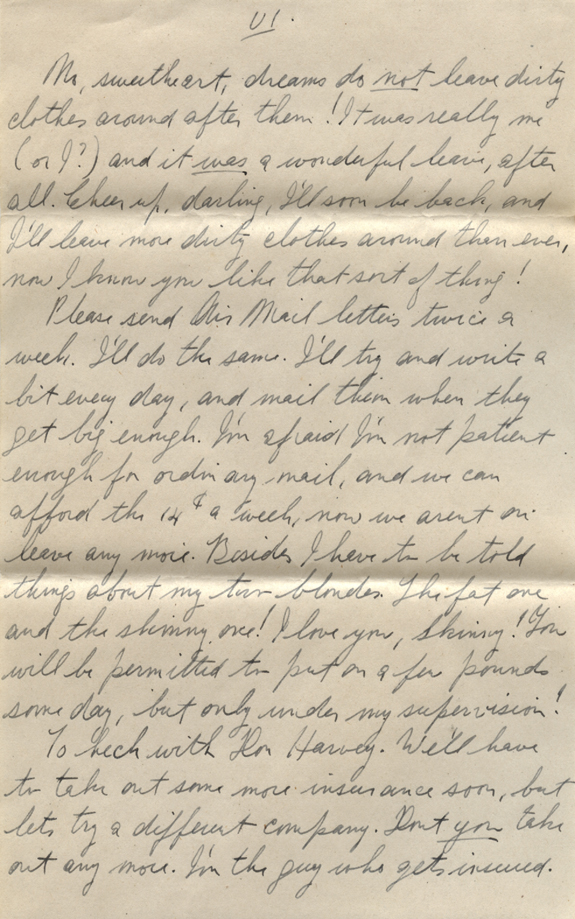 VI.
No, sweetheart, dreams do not leave dirty
clothes around after them! It was really me
(or I?) and it was a wonderful leave, after
all. Cheer up, darling, I'll soon be back, and
I'll leave more dirty clothes around than ever,
now I know you like that sort of thing!
Please send Air Mail letters twice a
week. I'll do the same. I'll try and write a
bit every day, and mail them when they
get big enough. I'm afraid I'm not patient
enough for ordinary mail, and we can
afford the 14¢ a week, now we arent on
leave any more. Besides I have to be told
things about my two blondes. The fat one
and the skinny one! I love you, Skinny! You
will be permitted to put on a few pounds
some day, but only under my supervision!
To heck with Don Harvey. We'll have
to take out some more insurance soon, but
lets try a different company. Dont you take
out any more. I'm the guy who gets insured.